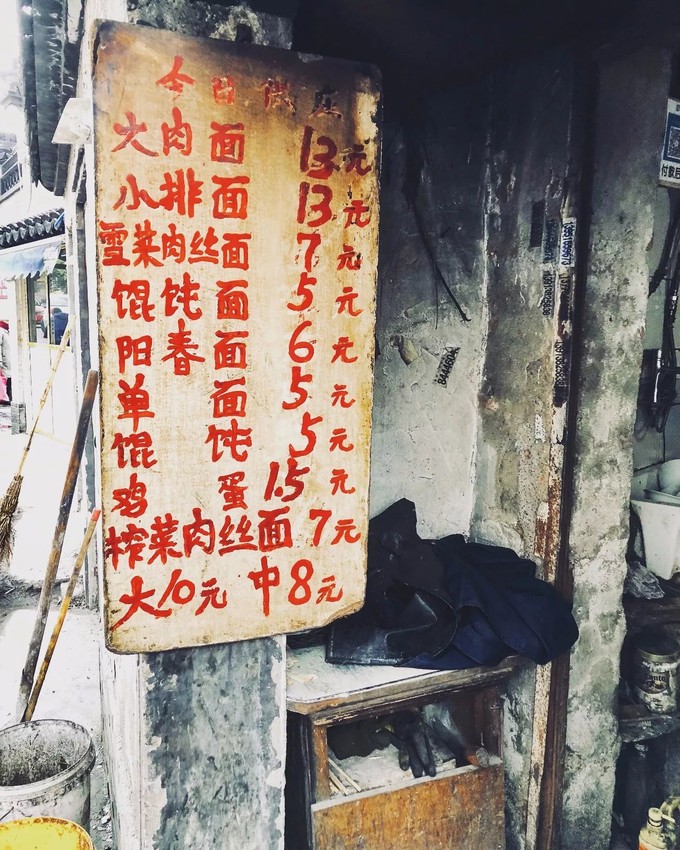 今日供应
大肉面 13元
小排面 13元
雪菜肉丝面 7元
馄饨面 5元
阳春面 6元
单面 5元
馄饨 5元
鸡蛋 1.5元
榨菜肉丝面 7元
大10元 中8元
付款后